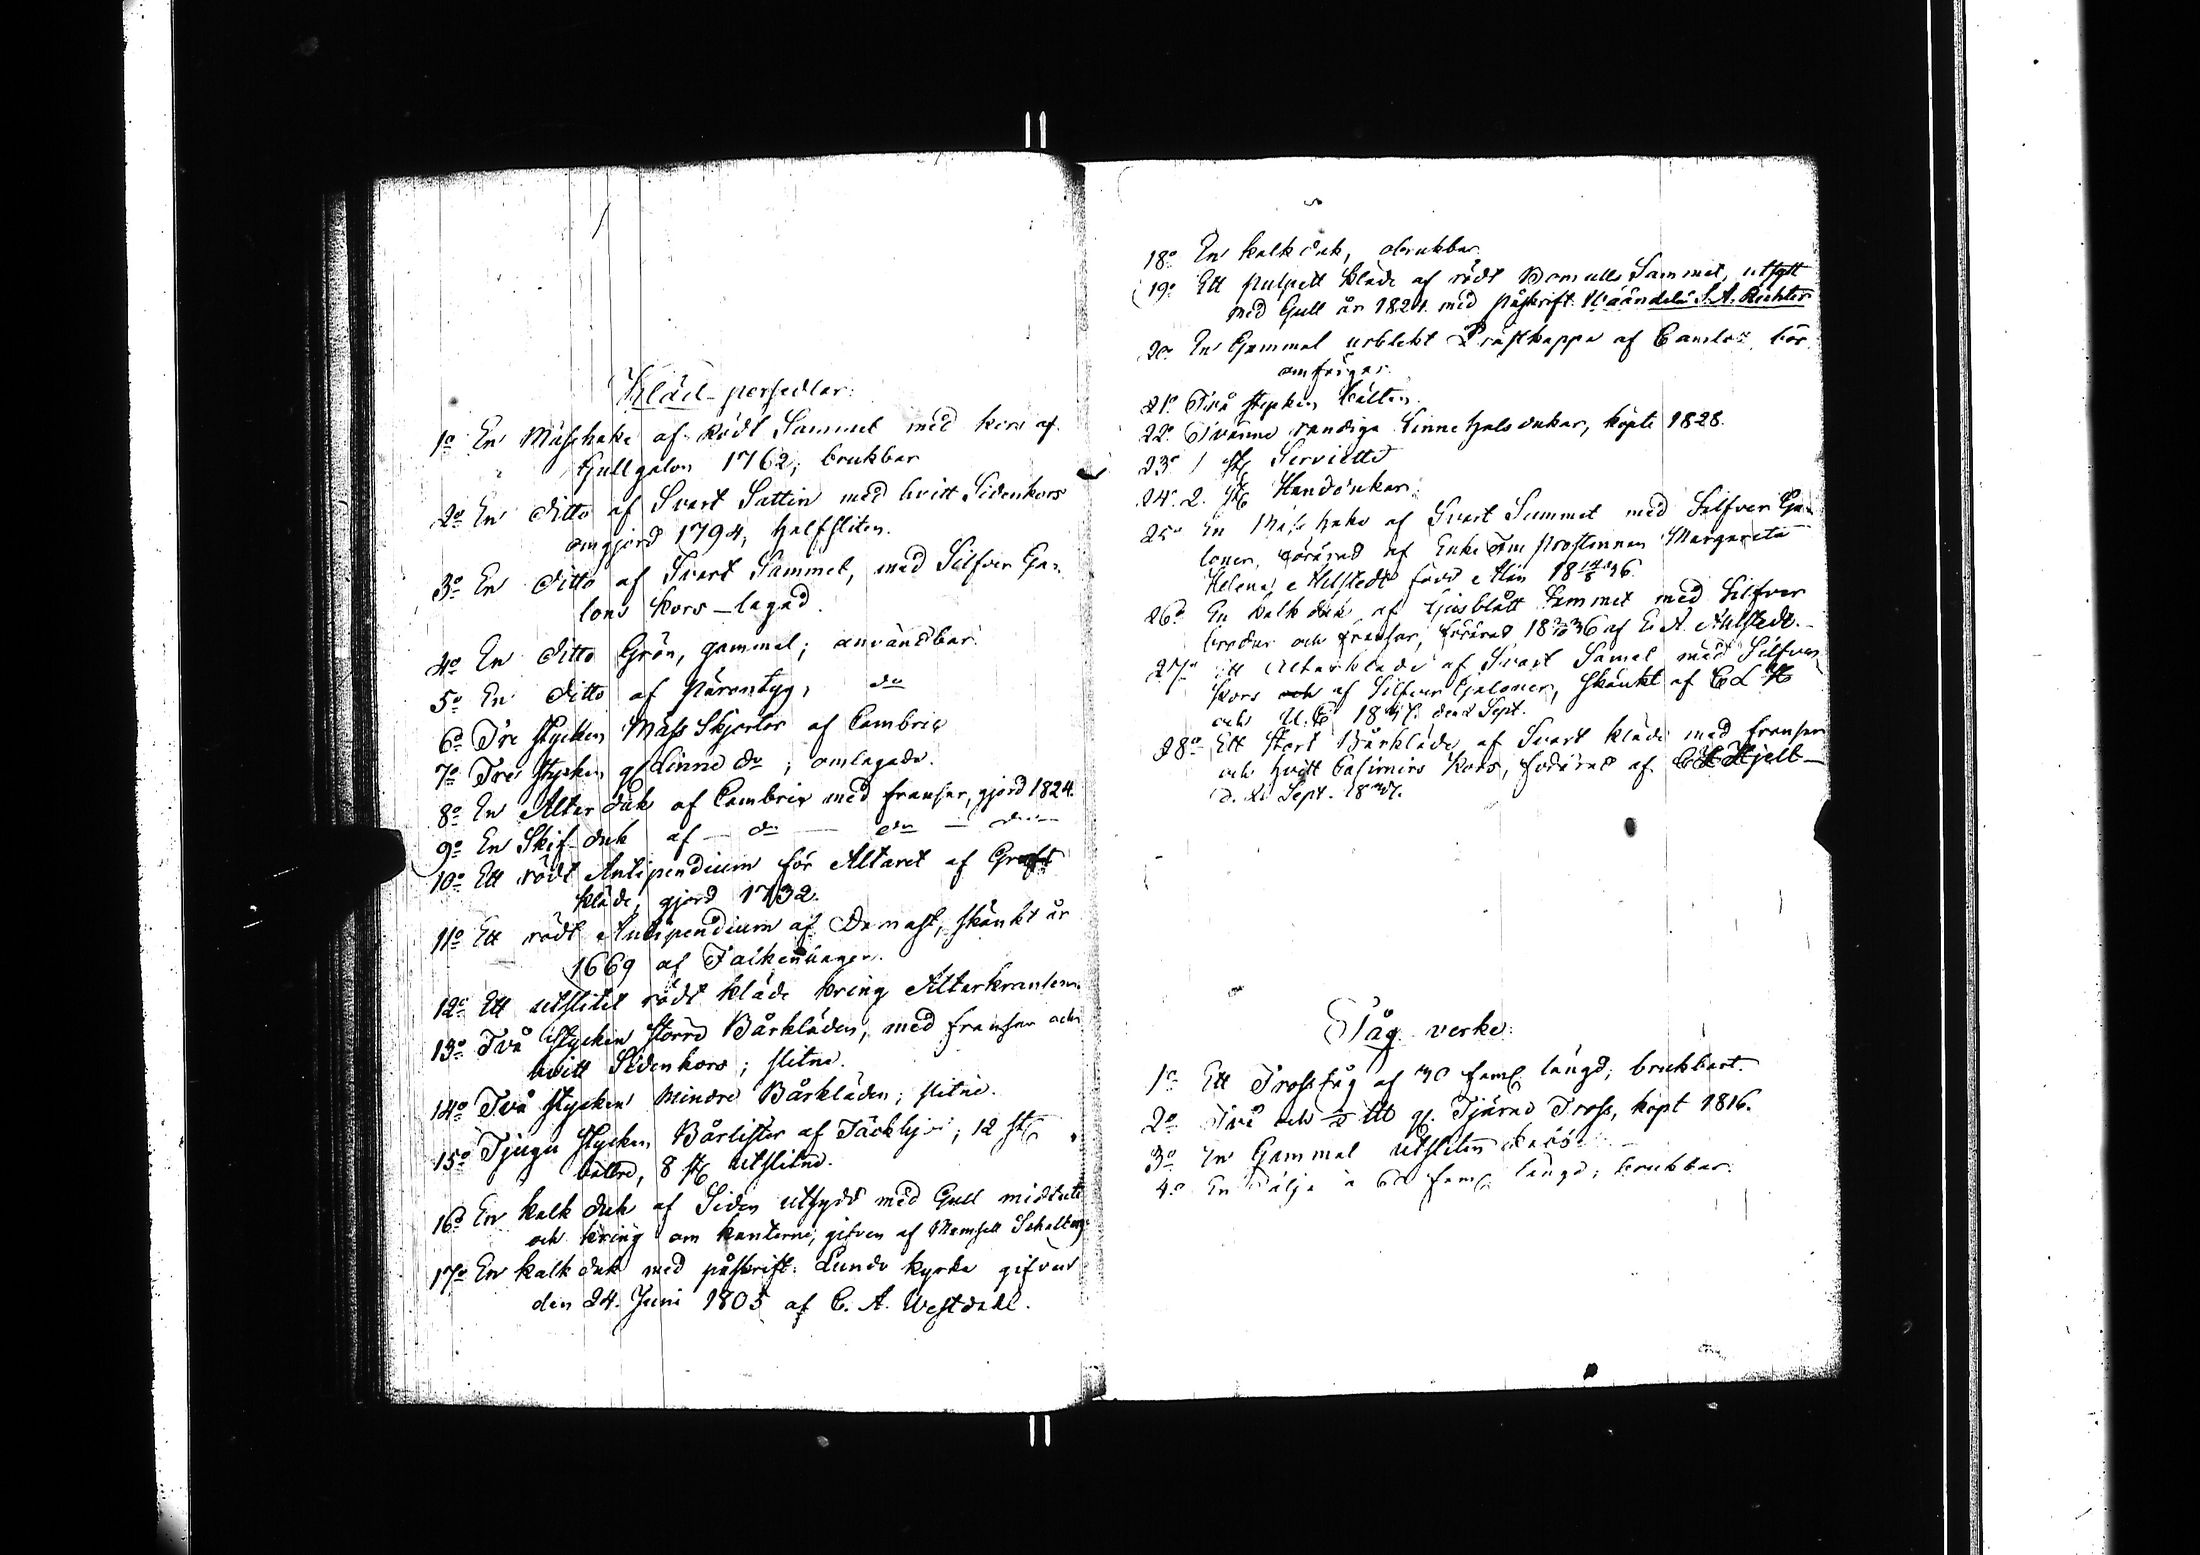 Kläd-persedlar:
1o En Mässhake af Rödt Sammet med kors af
Gullgalon 1762; brukbar
2o En ditto af Svart Sattin med hvitt Sidenkors
omgjord 1794, halfsliten.
3o En ditto af Svart Sammet, med Silfver Ga-
lons kors - lagad.
4o En ditto Grön, gammal; användbar.
5o En ditto af do
6o Tre stycken Mäss Skjortor af Cambric
7o Tre stycken gl Linne do; omlagade.
8o En Altar duk af Cambric med fransar, gjord 1824.
9o En Skif-duk af - do - do - do
10o Ett rödt Antipendium för Altaret af Groft
kläde, gjord 1732.
11o Ett rödt Antipendium af Damast, skänkt år
1669 af
12o Ett utslitet rödt kläde kring Altarkransen
13o Två Stycken större Bårkläden, med fransar och
hvitt Sidenkors; slitne.
14o Två stycken mindre Bårkläden; slitne.
15o Tjugu stycken Bårlister af 12 st
bättre, 8 st utslitne.
16o En kalk duk af Siden utsydd med Gull midtuti
och kring om kanterne, gifven af Mamsell
17o En kalk duk med påskrift: Lundo kyrka gifvas
den 24. Juni 1805 af C. A. Westdahl.
18o En kalkduk, obrukbar.
19o Ett pulpett kläde af rödt Bomulls Sammet, utsytt
med Gull år 1824. med påskrift: S. A. Richter
20 En Gammal urblekt Prästkappa af Camlott, bör
omfärgas.
21o Två stycken bälten.
22o Tvänne randiga Linne halsdukar, köpte 1828.
23o 1 st Serviette
24o 2. st Handdukar.
25o En Mässhake af Svart Sammet med Silfver Ga-
loner, förärad af Enke Fru Prostinnan Margareta
Helena Ahlstedt född Alin 36.
26o En kalkduk af Ljusblått Sammet med Silfver
brodur och fransar, förärad 36 af E. A. Ahlstedt.
27o Ett Altarkläde af Svart Samet med Silfver
kors och af Silfver Galoner, skänkt af C L H
och U. C den 2 Sept.
28o Ett stort Bårkläde af Svart kläde med fransar
och hvitt Casimirs kors, förärad af C L Hjelt
d. 2 Sept. 1847.
Tåg verke:
1o Ett Trosståg af 40 famr längd, brukbart.
2o Två och ℔ gl. Tjärad Tross, köpt 1816.
3o En Gammal utsliten
4o En à 60 famr längd; brukbar.